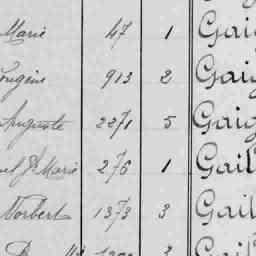 Marie 47 1 Gaig
ongène 913 2 Gaig
Auguste 2271 5 Gaig
Marie 276 1 Gail
Norbert 1373 3 Gail